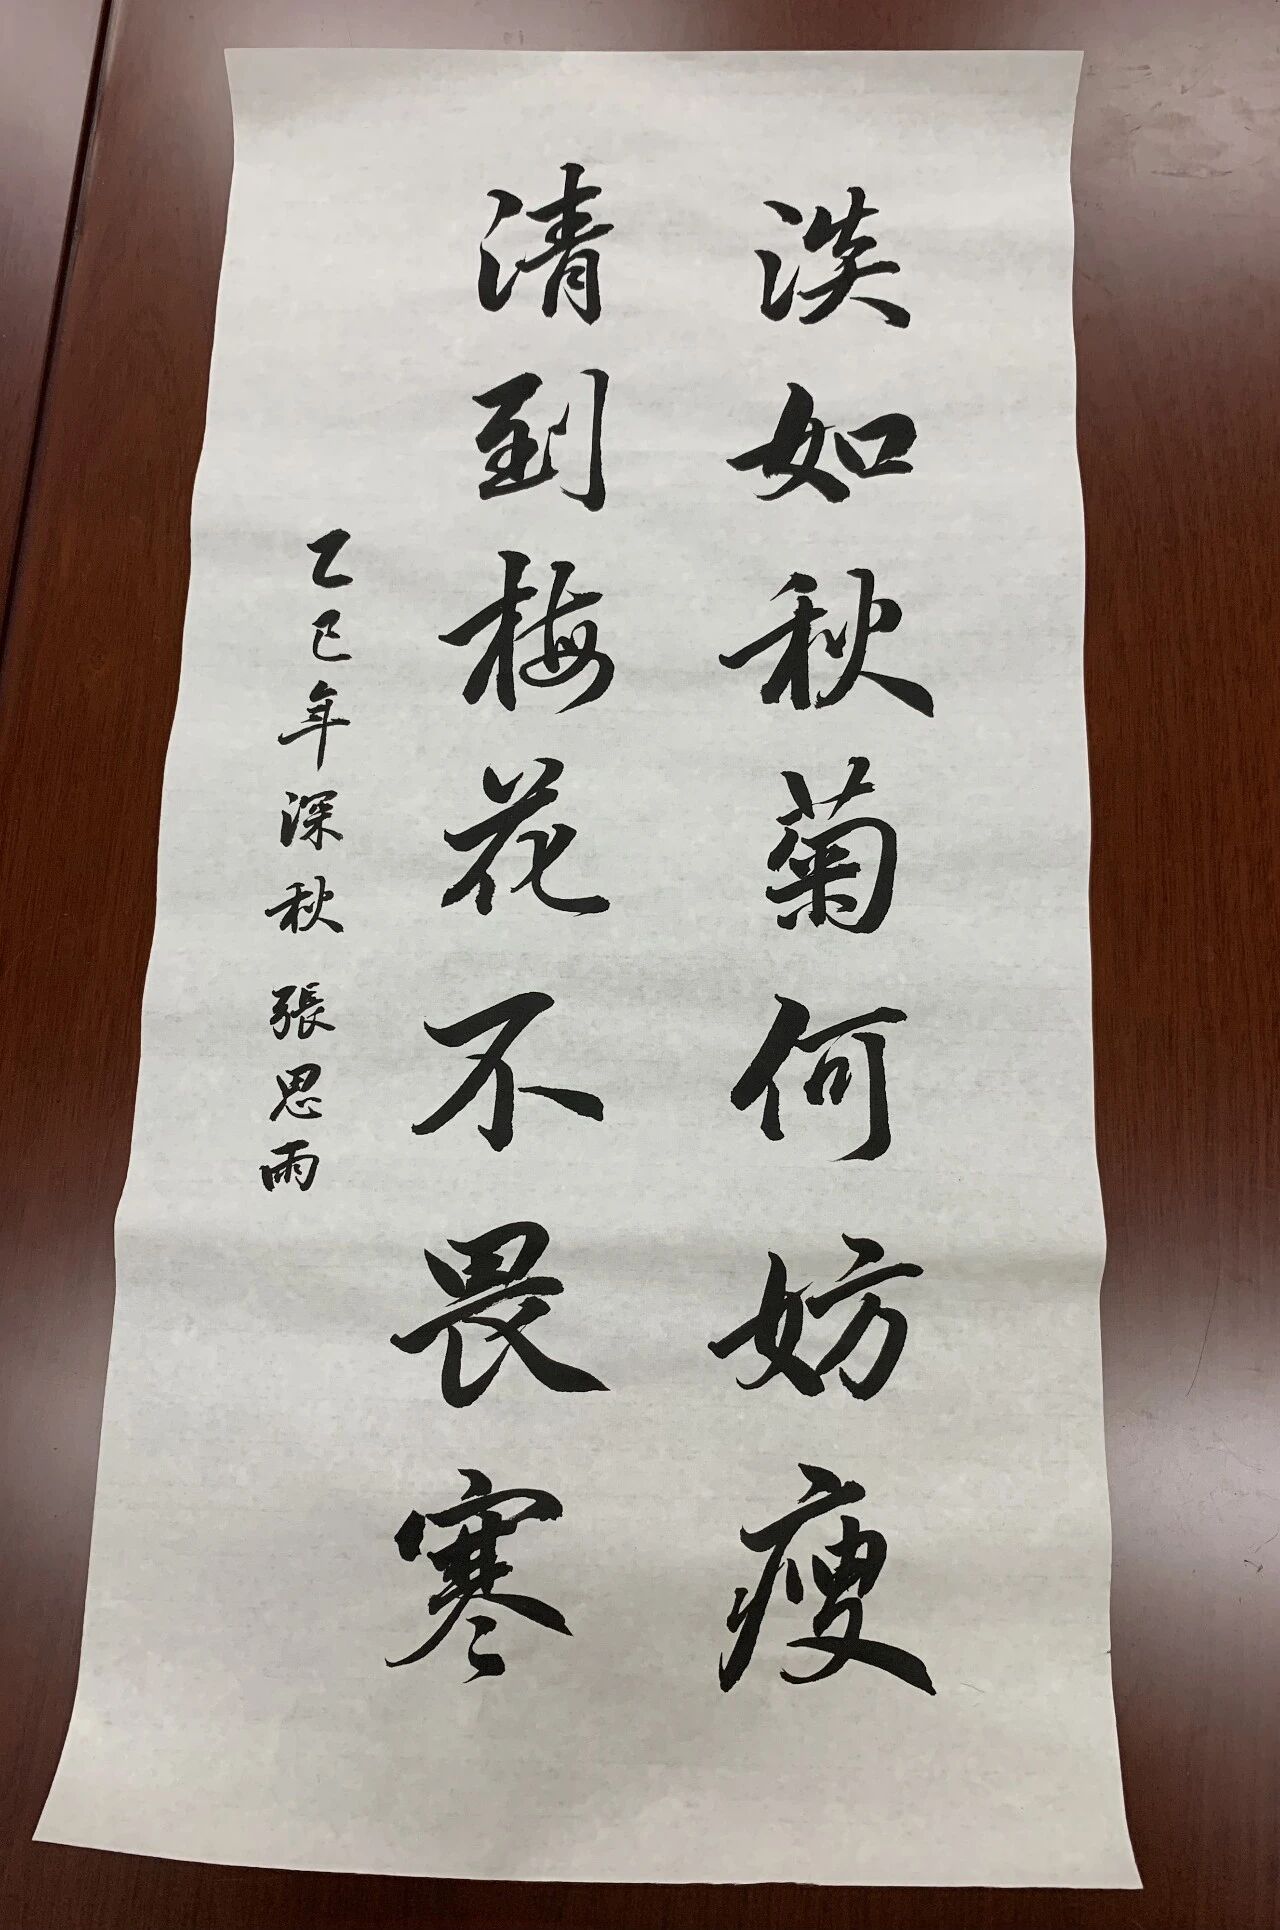 淡如秋菊何妨瘦
清到梅花不畏寒
乙巳年深秋 張思雨